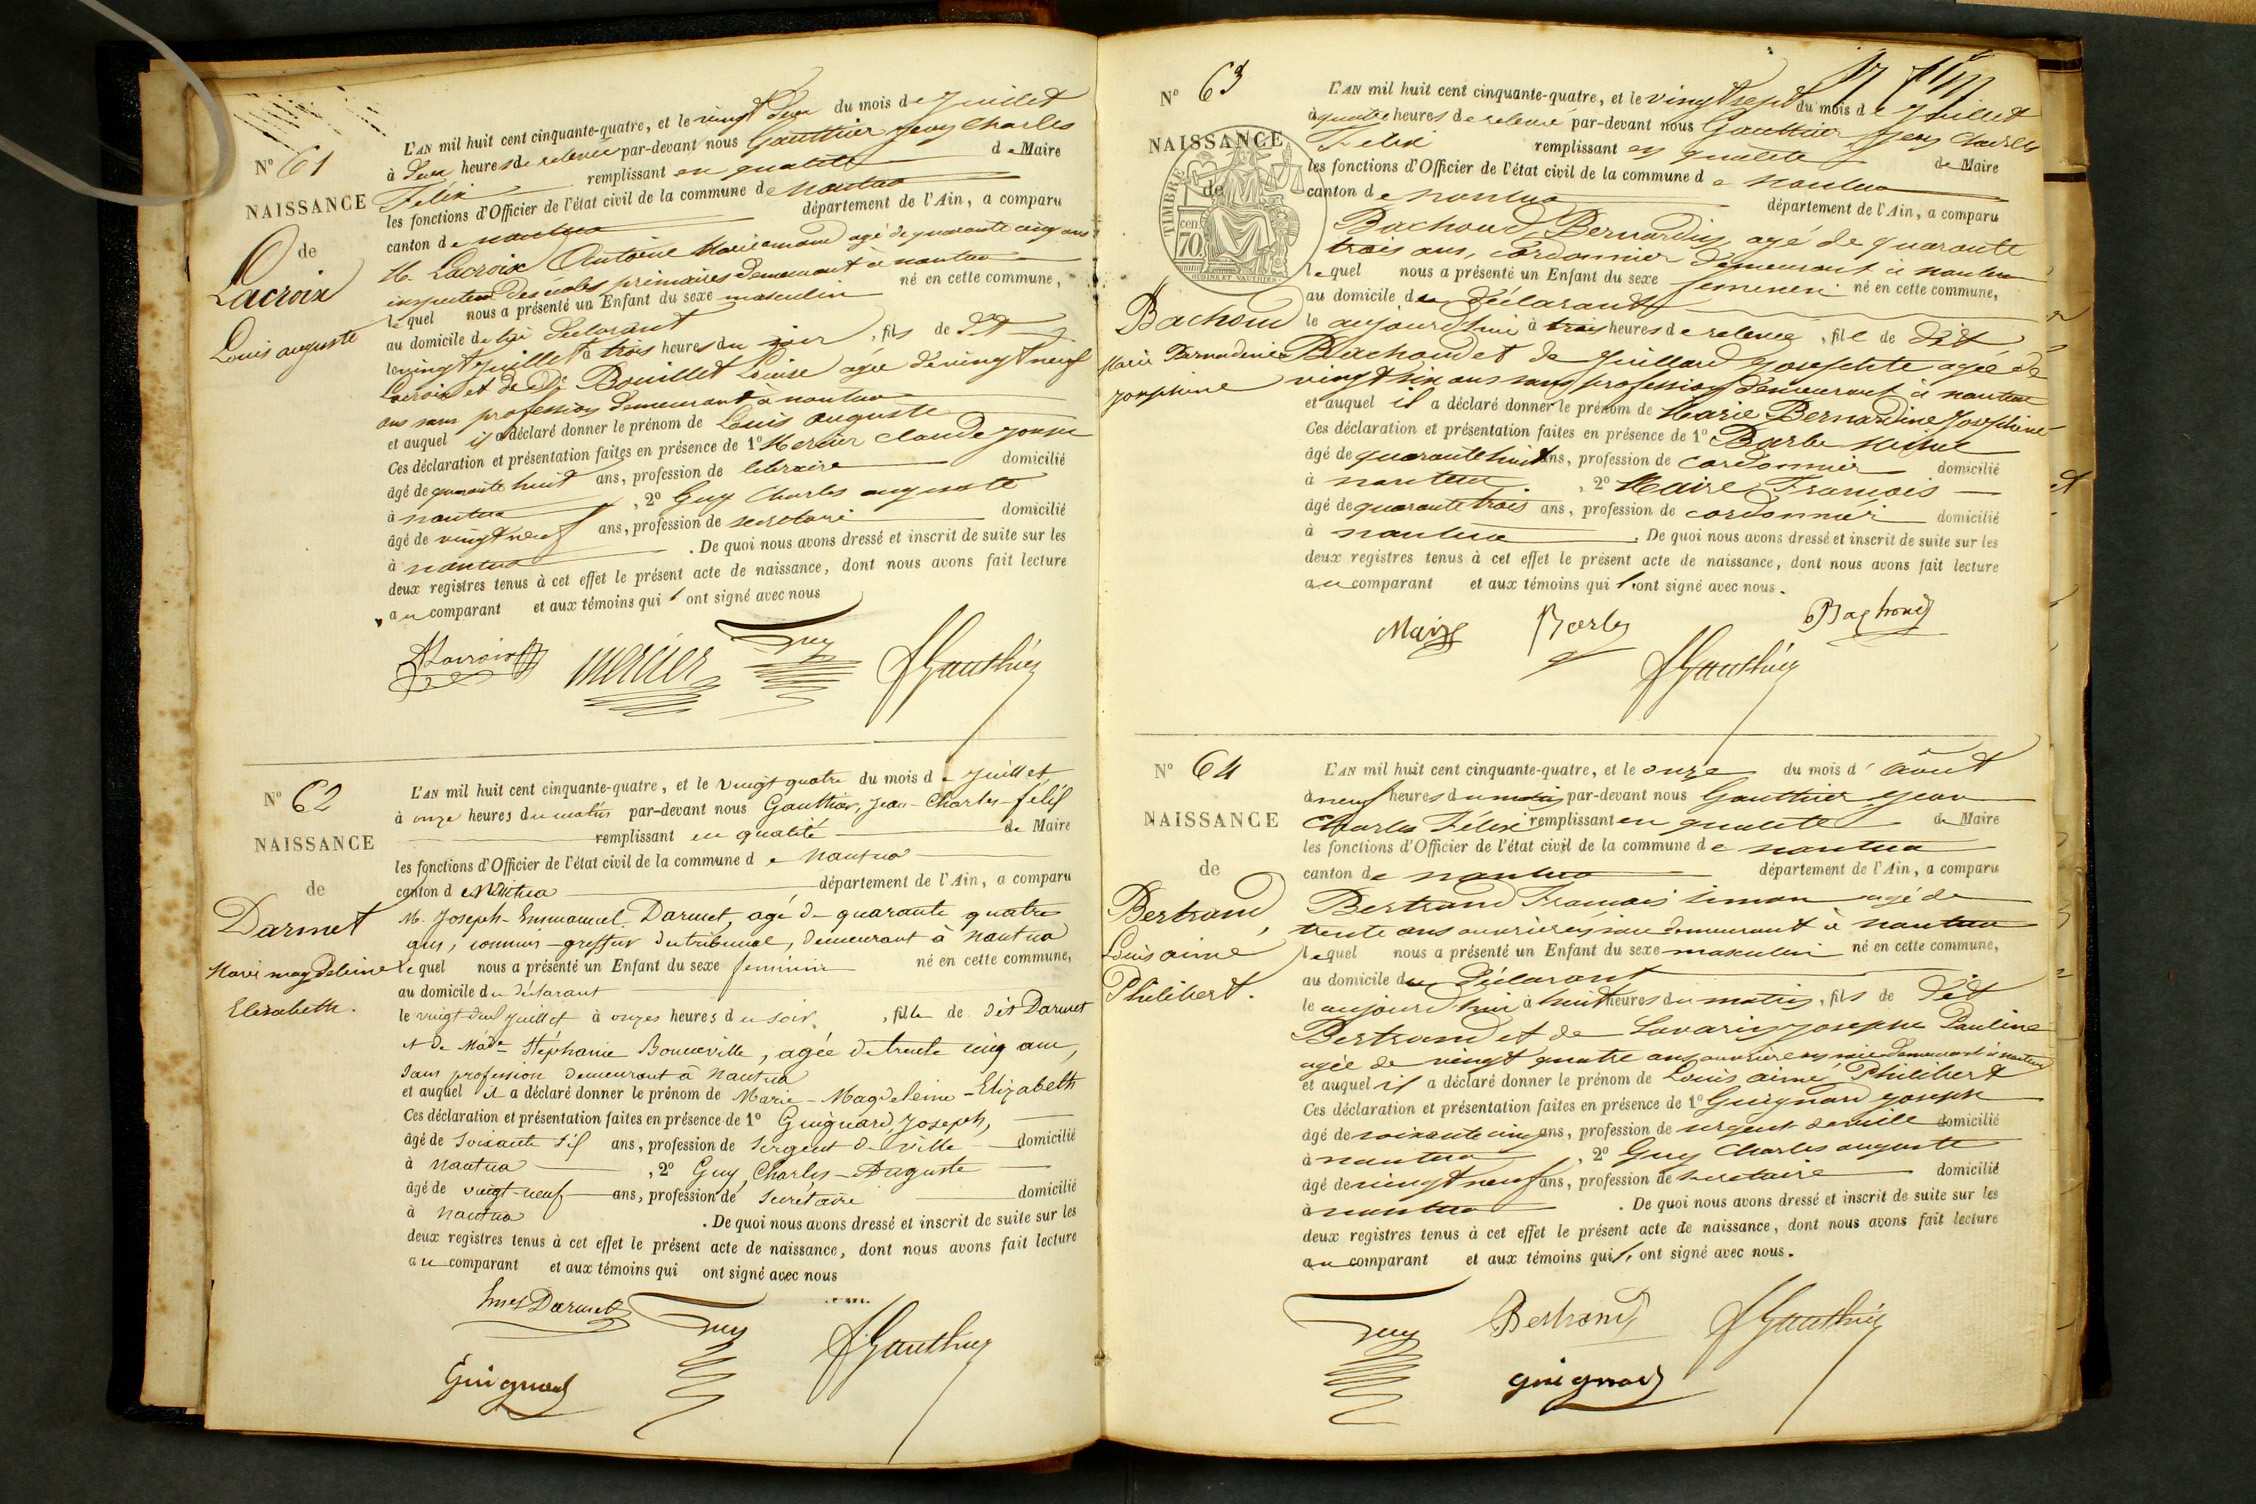 N° 61
NAISSANCE
de
Lacroix
Louis auguste
L'AN mil huit cent cinquante-quatre, et le vingt deux du mois de Juillet
à deux heures de relevée par-devant nous Gautthier Jean Charles
Félix remplissant en qualité de Maire
les fonctions d'Officier de l'état civil de la commune de nantua
canton de nantua département de l'Ain, a comparu
M. Lacroix Antoine Marie amand agé de quarante cinq ans
inspecteur des écoles primaires demeurant à nantua
lequel nous a présenté un Enfant du sexe masculin né en cette commune,
au domicile de lui déclarant
le vingt juillet à trois heures du soir, fils de dit
Lacroix et de De Bouillet Louise agée de vingt neuf
ans sans profession demeurant à nantua
et auquel il a déclaré donner le prénom de Louis auguste
Ces déclaration et présentation faites en présence de 1° Mercier Claude Joseph
âgé de quarante huit ans, profession de libraire domicilié
à nantua, 2° Guy Charles auguste
âgé de vingt neuf ans, profession de secretaire domicilié
à nantua. De quoi nous avons dressé et inscrit de suite sur les
deux registres tenus à cet effet le présent acte de naissance, dont nous avons fait lecture
au comparant et aux témoins qui l'ont signé avec nous
ALacroix mercier Guy fGautthier
N° 62
NAISSANCE
de
Darmet
Marie magdeleine
Elisabeth.
L'AN mil huit cent cinquante-quatre, et le vingt quatre du mois de Juillet
à onze heures du matin par-devant nous Gautthier, Jean-Charles-félix
remplissant en qualité de Maire
les fonctions d'Officier de l'état civil de la commune de Nantua
canton de Nantua département de l'Ain, a comparu
M. Joseph-Emmanuel Darmet, agé de quarante quatre
ans, commis-greffier du tribunal, demeurant à Nantua
lequel nous a présenté un Enfant du sexe féminin né en cette commune,
au domicile du déclarant
le vingt deux juillet à onzes heures du soir, fille de dit Darmet
et de Made Stéphanie Bonneville, agée de trente cinq ans,
sans profession demeurant à Nantua
et auquel il a déclaré donner le prénom de Marie-Magdeleine-Elizabeth
Ces déclaration et présentation faites en présence de 1° Guignard, Joseph,
âgé de soixante six ans, profession de Sergent de ville domicilié
à Nantua, 2° Guy, Charles-Auguste
âgé de vingt-neuf ans, profession de Secretaire domicilié
à Nantua. De quoi nous avons dressé et inscrit de suite sur les
deux registres tenus à cet effet le présent acte de naissance, dont nous avons fait lecture
au comparant et aux témoins qui ont signé avec nous
Darmet Guy fGautthier
Guignard
N° 63
NAISSANCE
de
TIMBRE
cen
70
Bachoud
Marie Bernardine
Josephine
L'AN mil huit cent cinquante-quatre, et le vingt sept du mois de Juillet
à quatre heures de relevée par-devant nous Gautthier Jean Charles
Félix remplissant en qualité de Maire
les fonctions d'Officier de l'état civil de la commune de nantua
canton de nantua département de l'Ain, a comparu
Bachoud Bernardin agé de quarante
trois ans, cordonnier demeurant à nantua
lequel nous a présenté un Enfant du sexe feminin né en cette commune,
au domicile du déclarant
le aujourd'hui à trois heures de relevée, fille de dit
Bachoud et de Juillard Josephte agée de
vingt six ans sans profession demeurant à nantua
et auquel il a déclaré donner le prénom de Marie Bernardine Josephine
Ces déclaration et présentation faites en présence de 1° Barbe
âgé de quarante huit ans, profession de cordonnier domicilié
à nantua, 2° Maire François
âgé de quarante trois ans, profession de cordonnier domicilié
à nantua. De quoi nous avons dressé et inscrit de suite sur les
deux registres tenus à cet effet le présent acte de naissance, dont nous avons fait lecture
au comparant et aux témoins qui l'ont signé avec nous.
Maire Barbe Bachoud
fGautthier
N° 64
NAISSANCE
de
Bertrand,
Louis aimé
Philibert.
L'AN mil huit cent cinquante-quatre, et le onze du mois d'août
à neuf heures du matin par-devant nous Gautthier Jean
Charles Félix remplissant en qualité de Maire
les fonctions d'Officier de l'état civil de la commune de nantua
canton de nantua département de l'Ain, a comparu
Bertrand François Simon agé de
trente ans ouvrier en soie demeurant à nantua
lequel nous a présenté un Enfant du sexe masculin né en cette commune,
au domicile du déclarant
le aujourd'hui à huit heures du matin, fils de dit
Bertrand et de Lavarin Josephe Pauline
agée de vingt quatre ans ouvriere en soie demeurant à nantua
et auquel il a déclaré donner le prénom de Louis aimé Philibert
Ces déclaration et présentation faites en présence de 1° Guignard Joseph
âgé de soixante cinq ans, profession de sergent de ville domicilié
à nantua, 2° Guy Charles auguste
âgé de vingt neuf ans, profession de secretaire domicilié
à nantua. De quoi nous avons dressé et inscrit de suite sur les
deux registres tenus à cet effet le présent acte de naissance, dont nous avons fait lecture
au comparant et aux témoins qui l'ont signé avec nous.
Guy Bertrand fGautthier
guignard